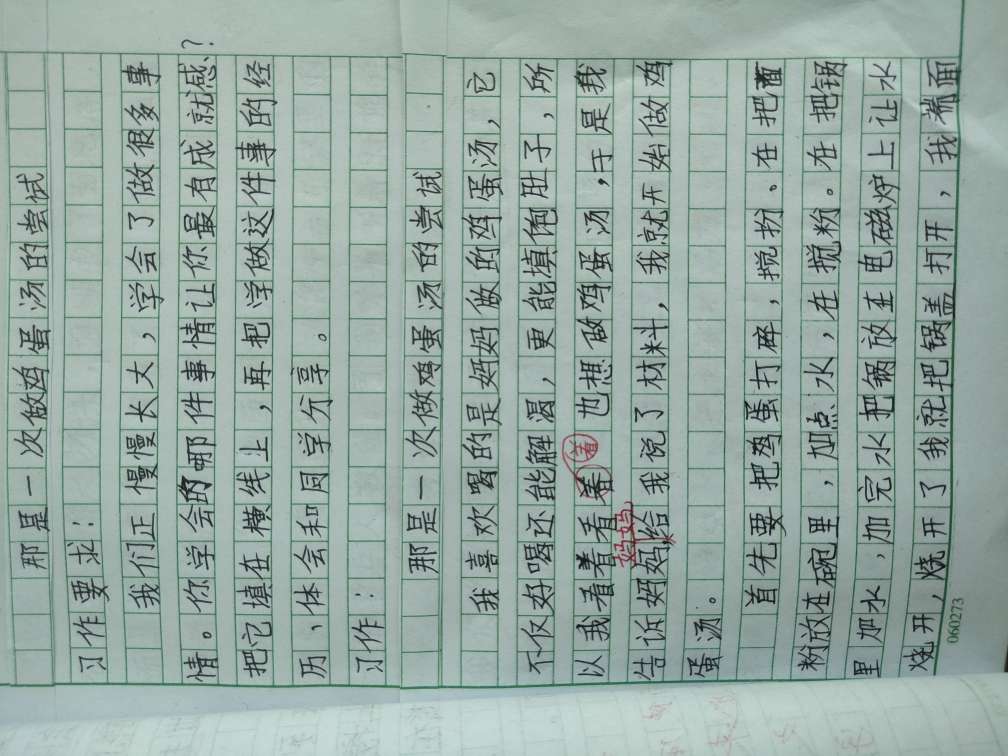 那是一次做鸡蛋汤的尝试
习作要求：
我们正慢慢长大，学会了做很多事
情。你学会的哪件事情让你最有成就感？
把它填在横线上，再把学做这件事的经
历、体会和同学分享。
习作：
那是一次做鸡蛋汤的尝试
我喜欢喝的是妈妈做的鸡蛋汤，它
不仅好喝还能解渴，更能填饱肚子，所
以我看着看着也想做鸡蛋汤，于是我
着
妈妈
告诉妈妈，给我说了材料，我就开始做鸡
蛋汤。
首先要把鸡蛋打碎，搅扮、在把面
粉放在碗里，加点水，在搅粉。在把锅
里加水，加完水把锅放在电磁炉上让水
烧开，烧开了我就把锅盖打开，我端面
060273